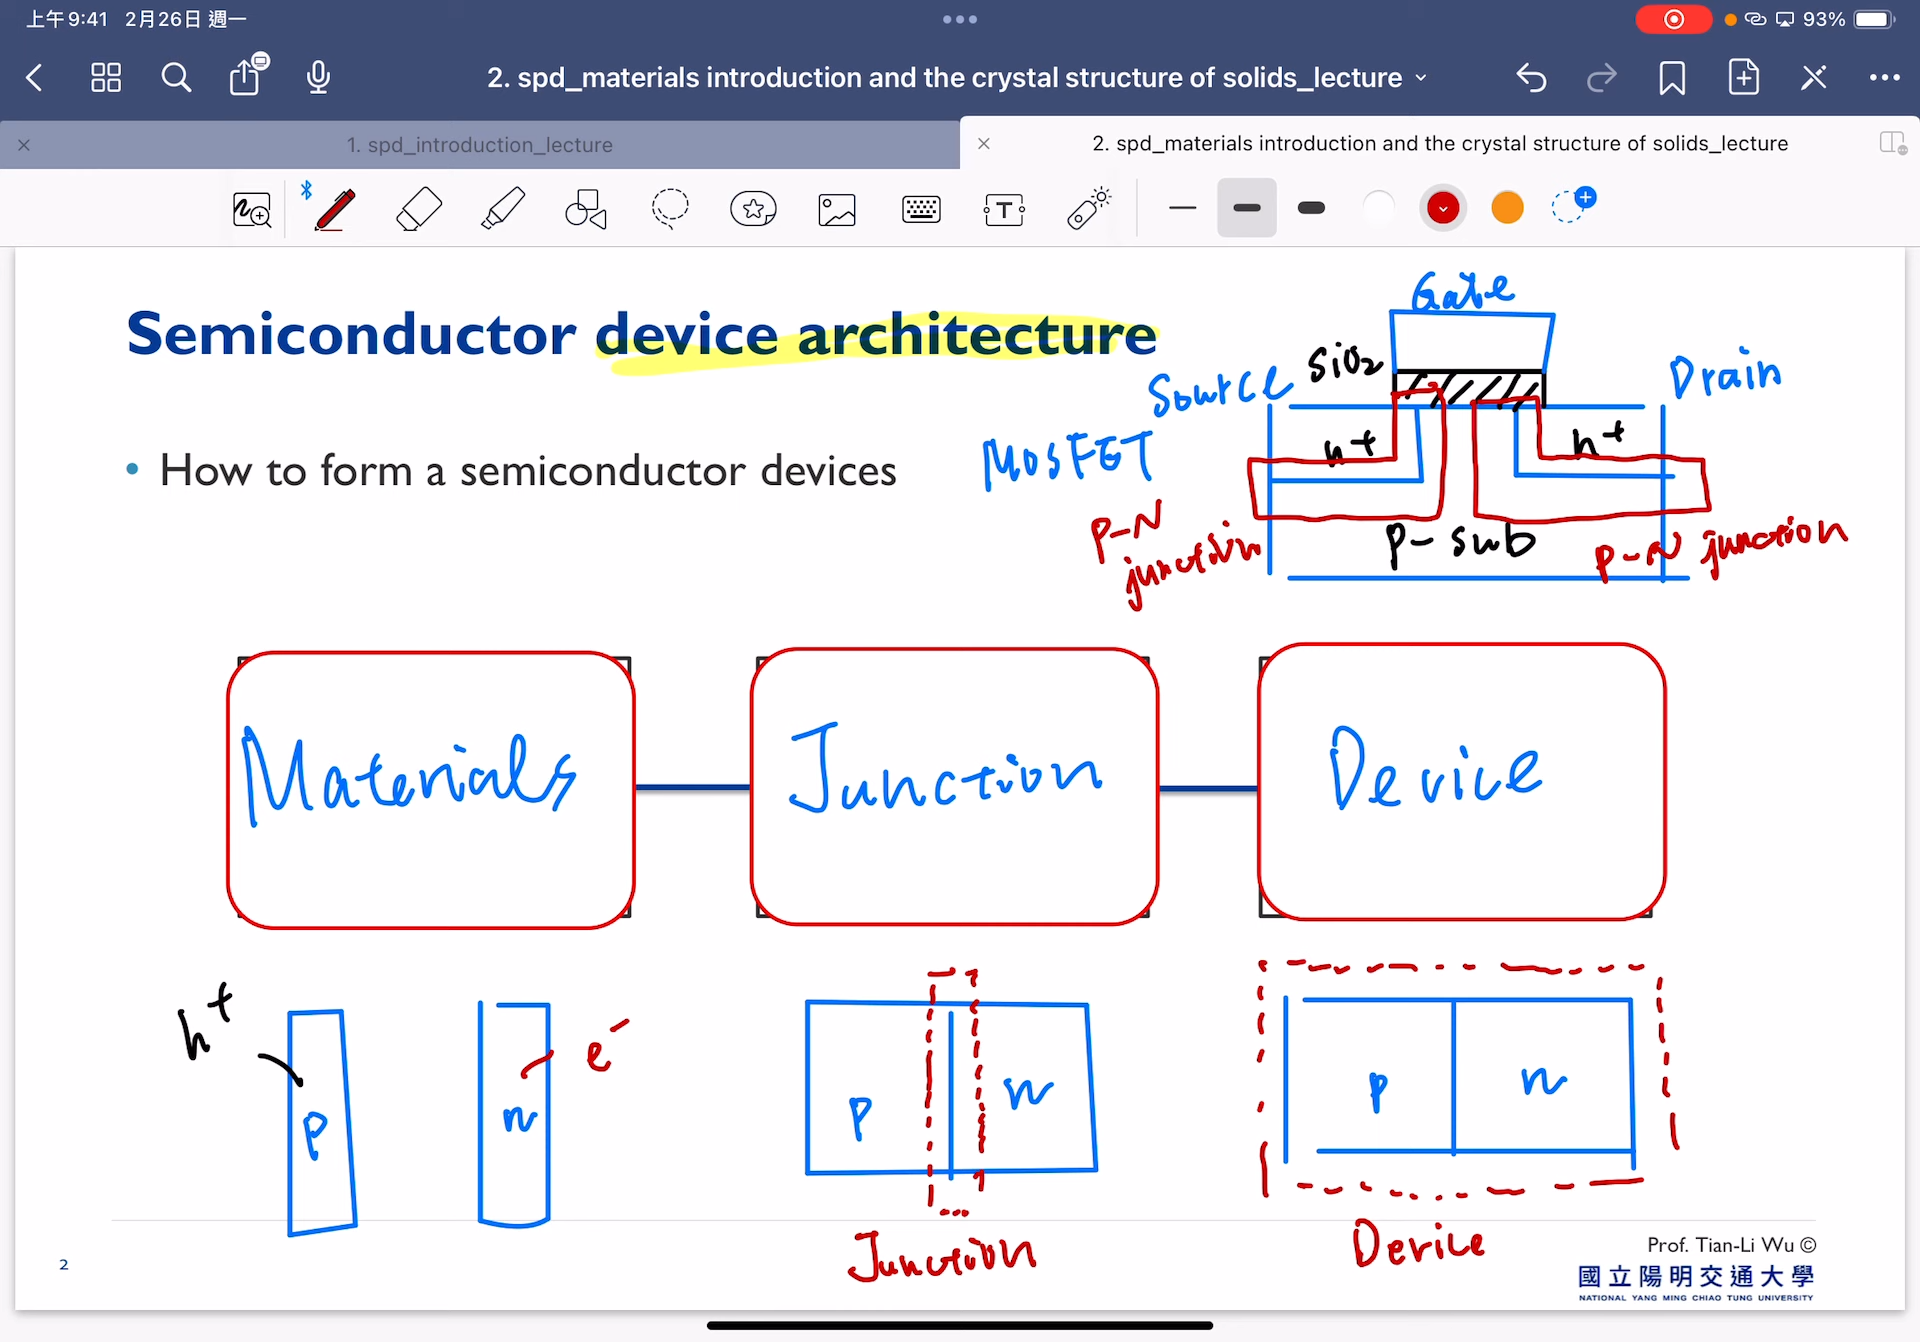 上午9:41 2月26日 週一
93%
2. spd_materials introduction and the crystal structure of solids_lecture
1. spd_introduction_lecture
2. spd_materials introduction and the crystal structure of solids_lecture
T
Semiconductor device architecture
Gate
SiO2
Source
Drain
• How to form a semiconductor devices
MOSFET
n+
n+
P-N
junction
P- sub
P-N junction
Materials
Junction
Device
h+
p
n
e-
p
n
p
n
Junction
Device
Prof. Tian-Li Wu ©
國立陽明交通大學
NATIONAL YANG MING CHIAO TUNG UNIVERSITY
2